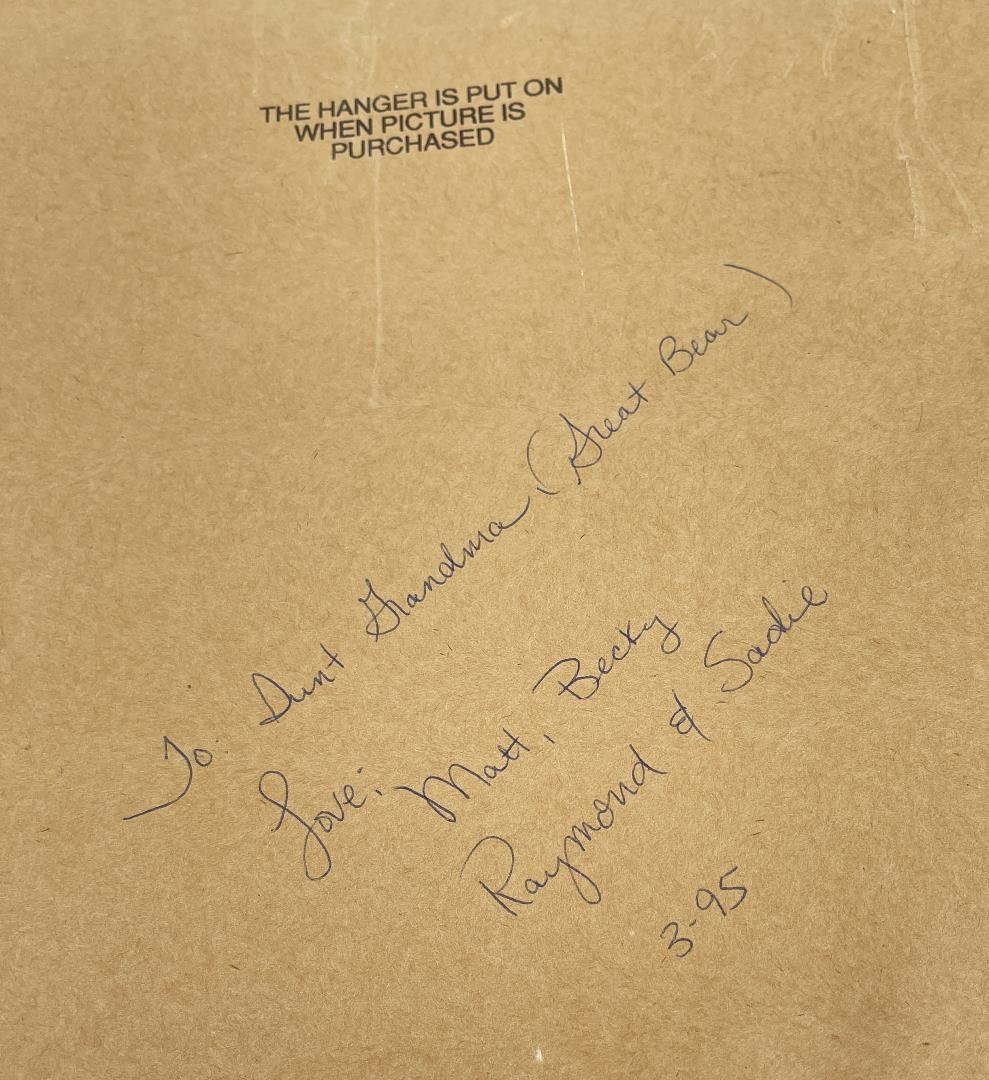 THE HANGER IS PUT ON
WHEN PICTURE IS
PURCHASED
To: Aunt Grandma, (Great Bear)
Love: Matt, Becky
Raymond & Sadie
3-95